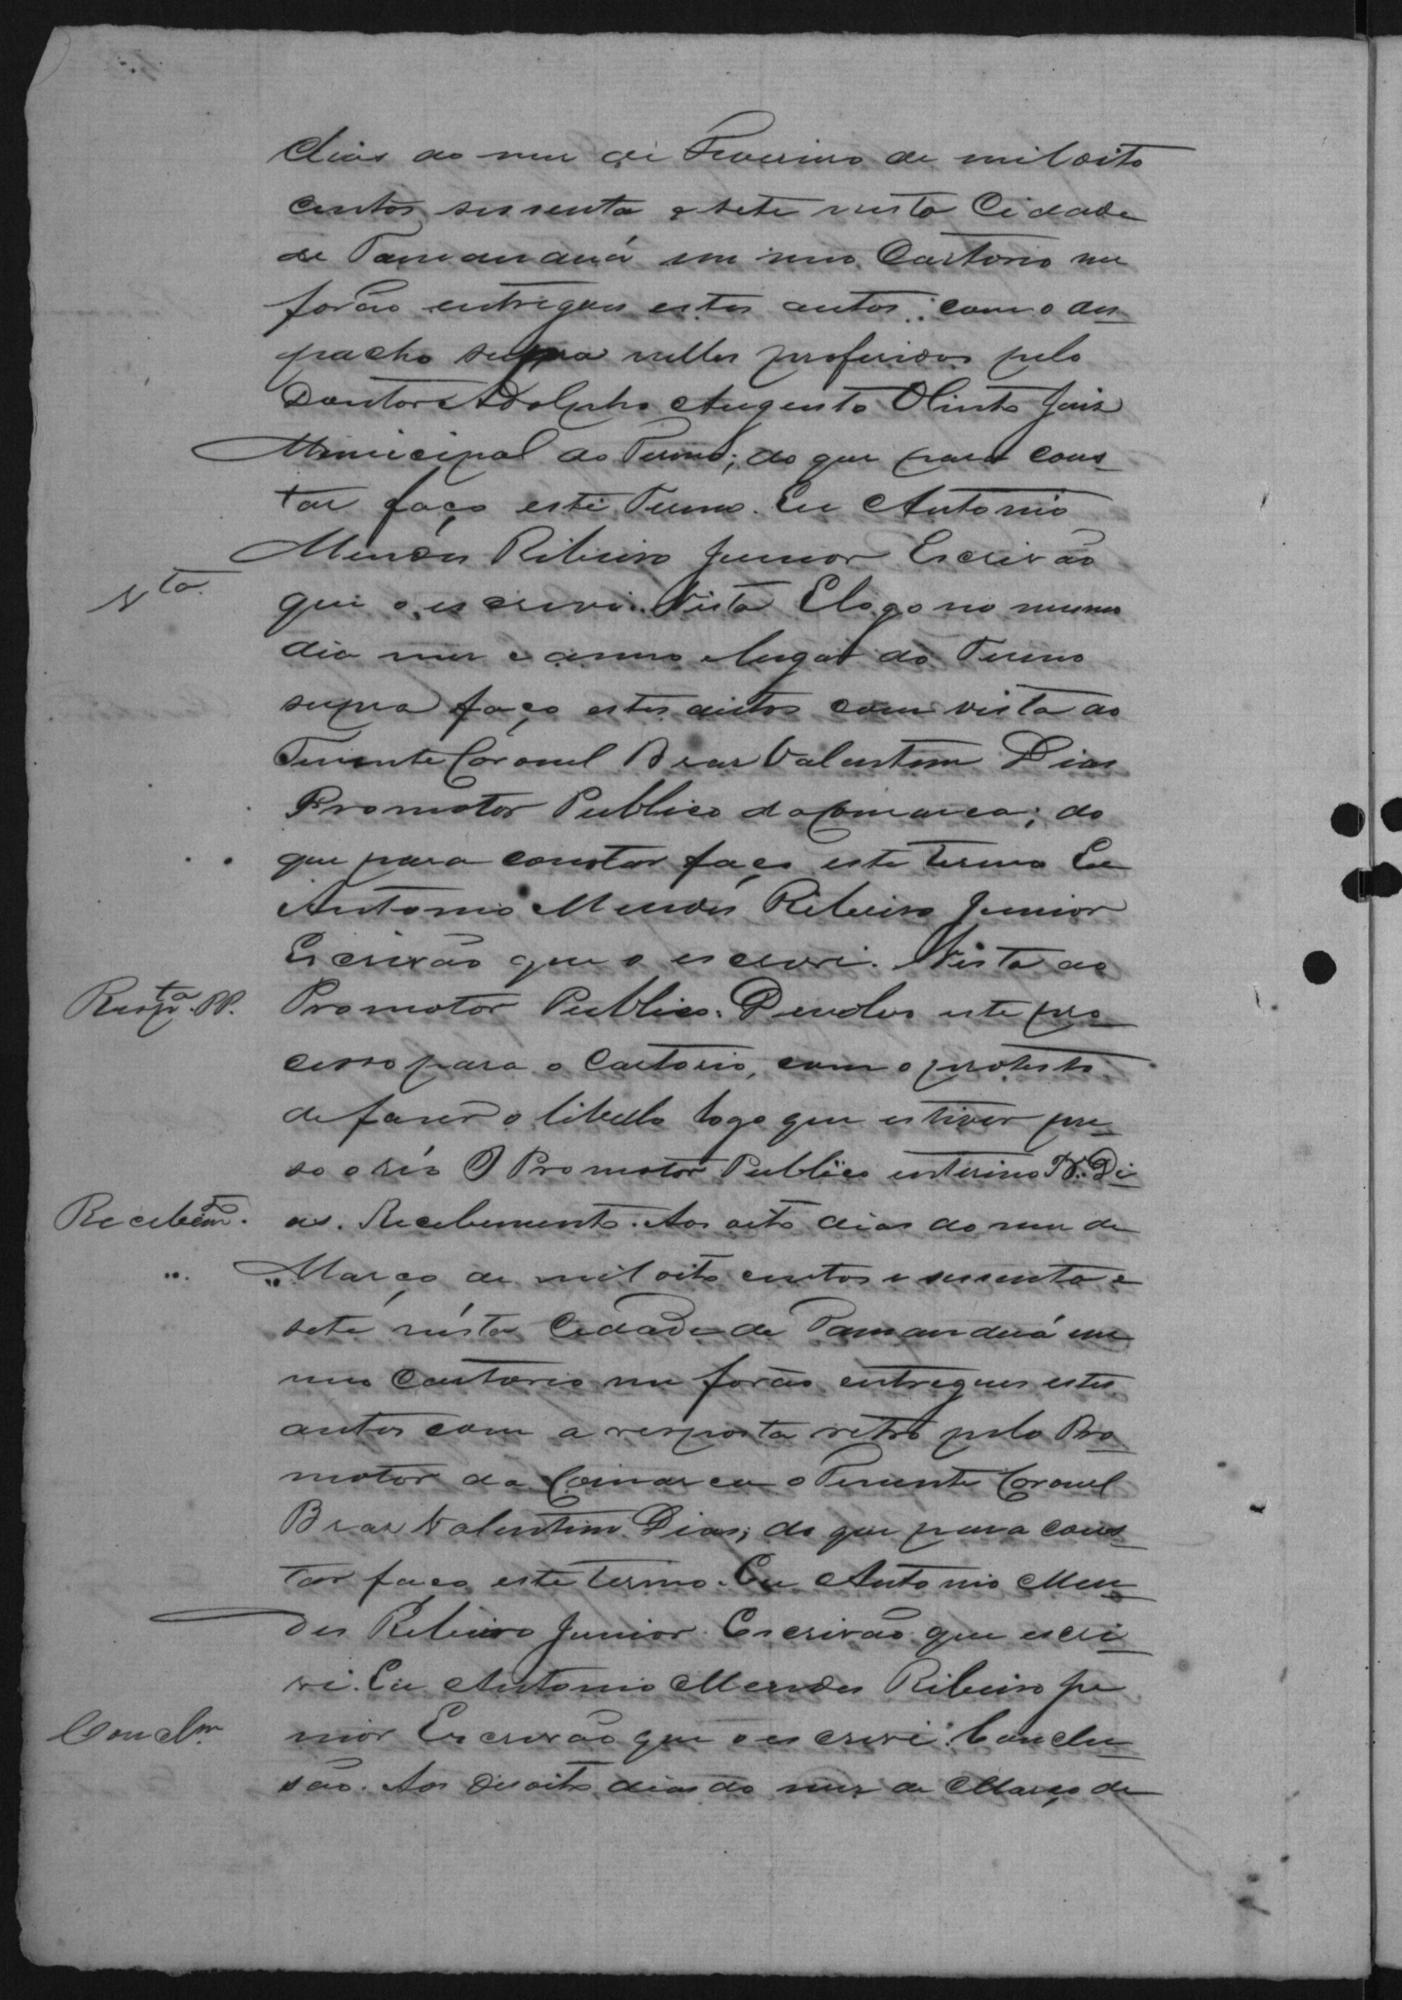 dias do mes de Fevereiro de mil oito
centos sessenta e sete nesta Cidade
de Tamanduá em meu Cartorio me
forão entregues estes autos com o des
pacho supra nelles proferidos pelo
Doutor Adolpho Augusto Olinto Juiz
Municipal do Termo; do que para cons
tar faço este Termo. Eu Antonio
Mendes Ribeiro Junior Escrivão
Vta.
que o escrevi. Vista E logo no mesmo
dia mes e anno e lugar do Termo
supra faço estes autos com vista ao
Tenente Coronel Bras Valentim Dias
Promotor Publico da Comarca; do
que para constar faço este termo Eu
Antonio Mendes Ribeiro Junior
Escrivão que o escrevi. Vista ao
Respta. PP.
Promotor Publico. Devolvo este pro
cesso para o Cartorio, com o protesto
de faser o libello logo que estiver pre
so o réo O Promotor Publico interino V. Di
Recebimto.
as. Recebimento. Aos oito dias do mes de
Março de mil oito centos e sessenta e
sete nésta Cidade de Tamanduá em
meu Cartorio me forão entregues estes
autos com a resposta retro pelo Pro
motor da Comarca o Tenente Coronel
Bras Valentim Dias; do que para cons
tar faço este termo. Eu Antonio Men
des Ribeiro Junior Escrivão que escre
vi. Eu Antonio Mendes Ribeiro Ju
Conclm.
nior Escrivão que o escrevi. Conclu
são. Aos desoito dias do mes de Março de